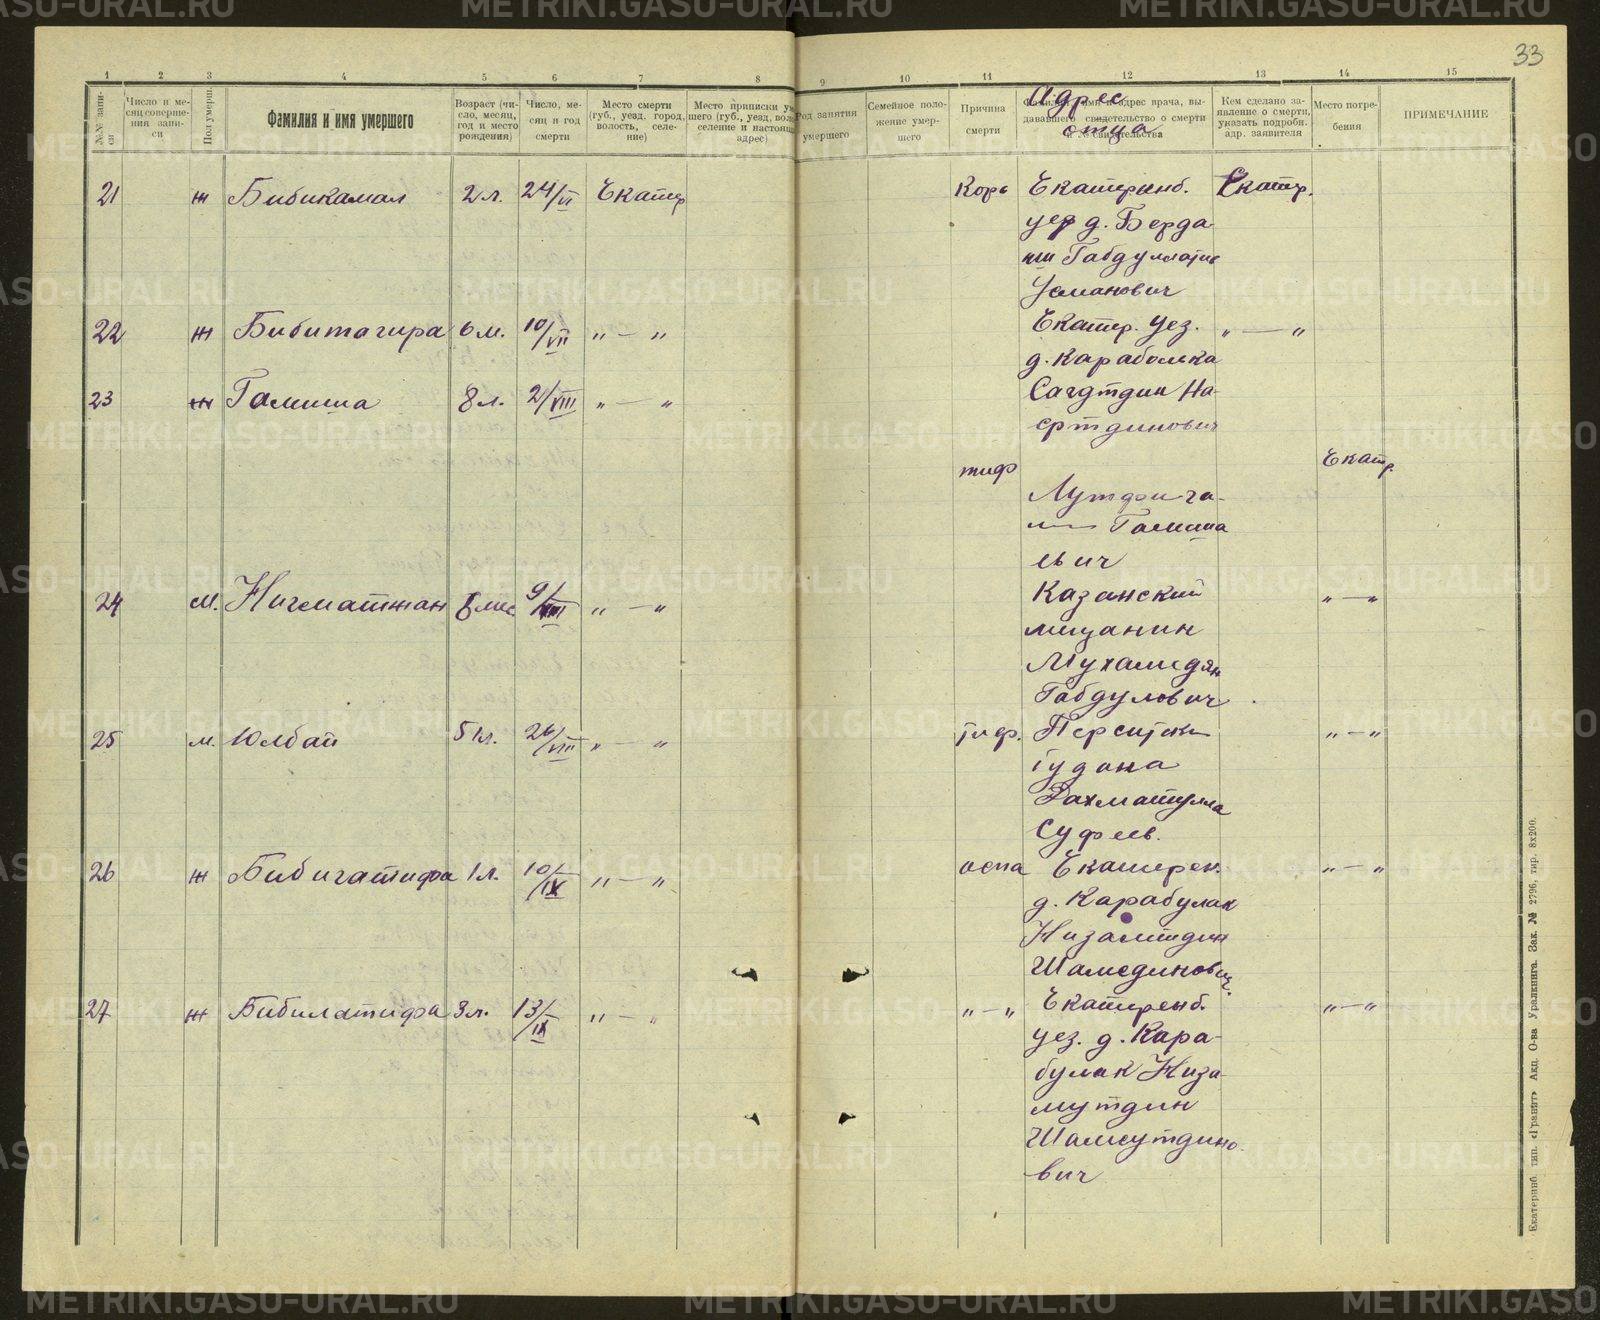 33
1 2 3 4 5 6 7 8 9 10 11 12 13 14 15
№№ записи
Число и месяц совершения записи
Пол умерш.
Фамилия и имя умершего
Возраст (число, месяц, год и место рождения)
Число, месяц и год смерти
Место смерти (губ., уезд. город, волость, селение)
Место приписки умершего (губ., уезд, вол., селение и настоящ. адрес)
Род занятия умершего
Семейное положение умершего
Причина смерти
Адрес отца
Кем сделано заявление о смерти, указать подробн. адр. заявителя
Место погребения
ПРИМЕЧАНИЕ
21 ж Бибикамал 2 л. 24/VI Екатер Корь Екатеринб. Екатер.
уез д. Берда
ниш Габдуллатиф
Усманович
22 ж Бибитагира 6 м. 10/VII „ — „ Екатер. уез. „ — „
д. Караболка
23 ж Галиша 8 л. 2/VIII „ — „ Сагдтдин На-
сртдинович
тиф Екатр.
Лутфига-
Галиша
евич
24 м. Нигматжан мес 9/VIII „ — „ Казанский „ — „
мещанин
Мухамедян
Габдулович
25 м. Юлбай 51 л. 26/VIII „ — „ тиф. „ — „
Рахматулла
Суфиев.
26 ж Бибигатифа 1 л. 10/IX „ — „ оспа Екатерен. „ — „
д. Карабулак
Низамтдин
Шамсдинович.
27 ж Бибилатифа 3 л. 13/IX „ — „ „ — „ Екатеренб. „ — „
уез. д. Кара-
булак Низа-
мутдин
Шамсутдино-
вич
Екатеринб. тип. «Гранит» Акц. О-ва Уралкнига. Зак. № 2796, тир. 8х200.
METRIKI.GASO-URAL.RU